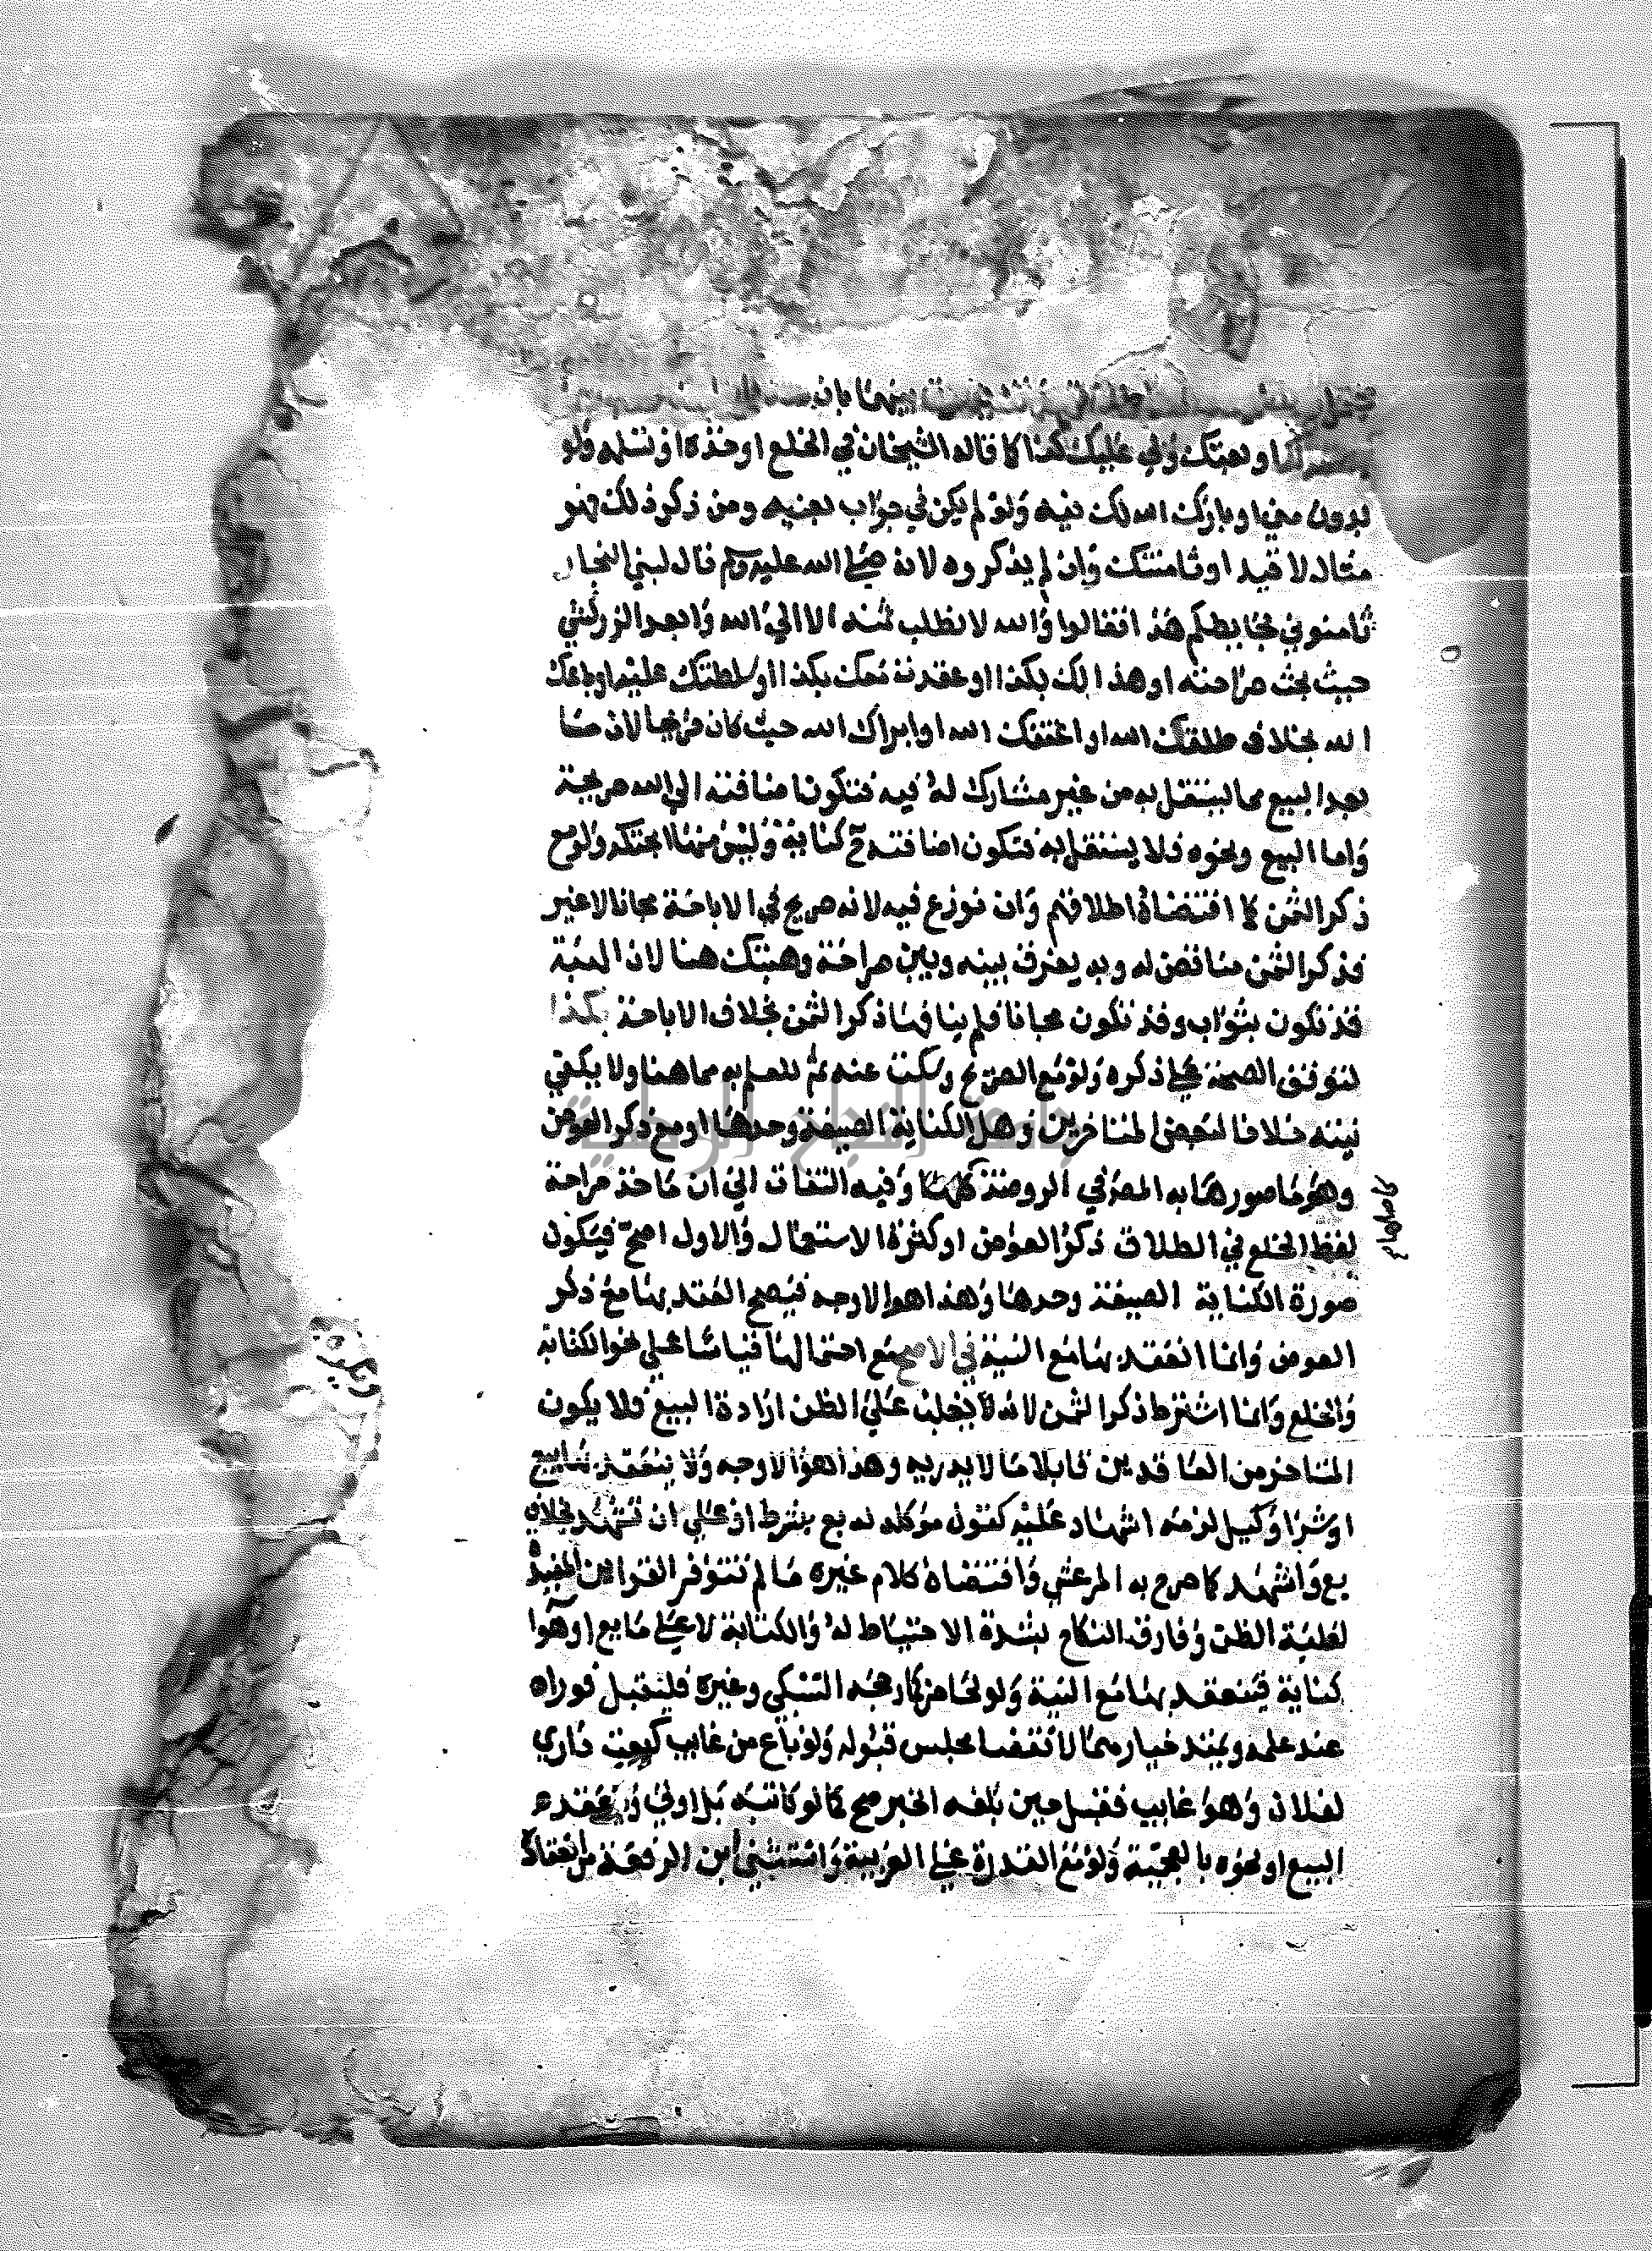 بينهما بان
او وهبتك ولي عليك كذا كما قاله الشيخان في الخلع او خذه او تسلمه ولو
بدون مني او بارك الله لك فيه ولو لم يكن في جواب بعنيه ومن ذكر ذلك فهو
مثال لا قيد او ثامنتك وان لم يذكروه لانه صلى الله عليه وسلم قال لبني النجار
ثامنوني بحائطكم هذا فقالوا والله لا نطلب ثمنه الا الى الله وابعد الزركشي
حيث بحث صراحته او هذا لك بكذا او عقدته معك بكذا او سلطتك عليه او باعك
الله بخلاف طلقك الله او اعتقك الله او ابراك الله حيث كان صريحا لان ما
بعد البيع مما يستقل به من غير مشارك له فيه فتكون اضافته الى الله صريحة
واما البيع ونحوه فلا يستقل به فتكون اضافته ح كناية وليس منها ابحتكه ولو مع
ذكر الثمن كما اقتضاه اطلاقهم وان نوزع فيه لانه صريح في الاباحة مجانا لا غير
فذكر الثمن مناقض له وبه يفرق بينه وبين صراحة وهبتك هنا لان الهبة
قد تكون بثواب وقد تكون مجانا فلم ينافها ذكر الثمن بخلاف الاباحة بكذا
لتوقف الصحة على ذكره ولو مع الصريح وسكت عنه ثم للعلم به مما هنا ولا يكفي
نيته خلافا لبعض المتاخرين وهل الكناية الصيغة وحدها او مع ذكر العوض
وهو ما صورها به المص في الروضة كاصلها وفيه التفات الى ان ماخذ صراحة
كاصلها م
لفظ الخلع في الطلاق ذكر العوض او كثرة الاستعمال والاول اصح فيكون
صورة الكناية الصيغة وحدها وهذا هو الاوجه فيصح العقد بها مع ذكر
العوض وانما انعقد بها مع النية في الاصح مع احتمالها قياسا على نحو الكتابة
والخلع وانما اشترط ذكر الثمن لانه لا يغلب على الظن ارادة البيع فلا يكون
المتاخر من العاقدين قابلا ما لا يدريه وهذا هو الاوجه ولا ينعقد بها بيع
او شرا وكيل لزمه اشهاد عليه كقول موكله له بع بشرط او على ان تشهد بخلاف
بع واشهد كما صرح به المرعشي واقتضاه كلام غيره ما لم تتوفر القراين المفيدة
لغلبة الظن وفارق النكاح بشدة الاحتياط له والكتابة لا على مايع او هوا
كناية فينعقد بها مع النية ولو لحاضر كما رجحه السبكي وغيره فليقبل فورا
عند علمه ويمتد خيارهما لانقضا مجلس قبوله ولو باع من غايب كبعت داري
لفلان وهو غايب فقبل حين بلغه الخبر صح كما لو كاتبه بل اولى وينعقد
البيع او نحوه بالعجمية ولو مع القدرة على العربية واستثنى ابن الرفعة من انعقاد